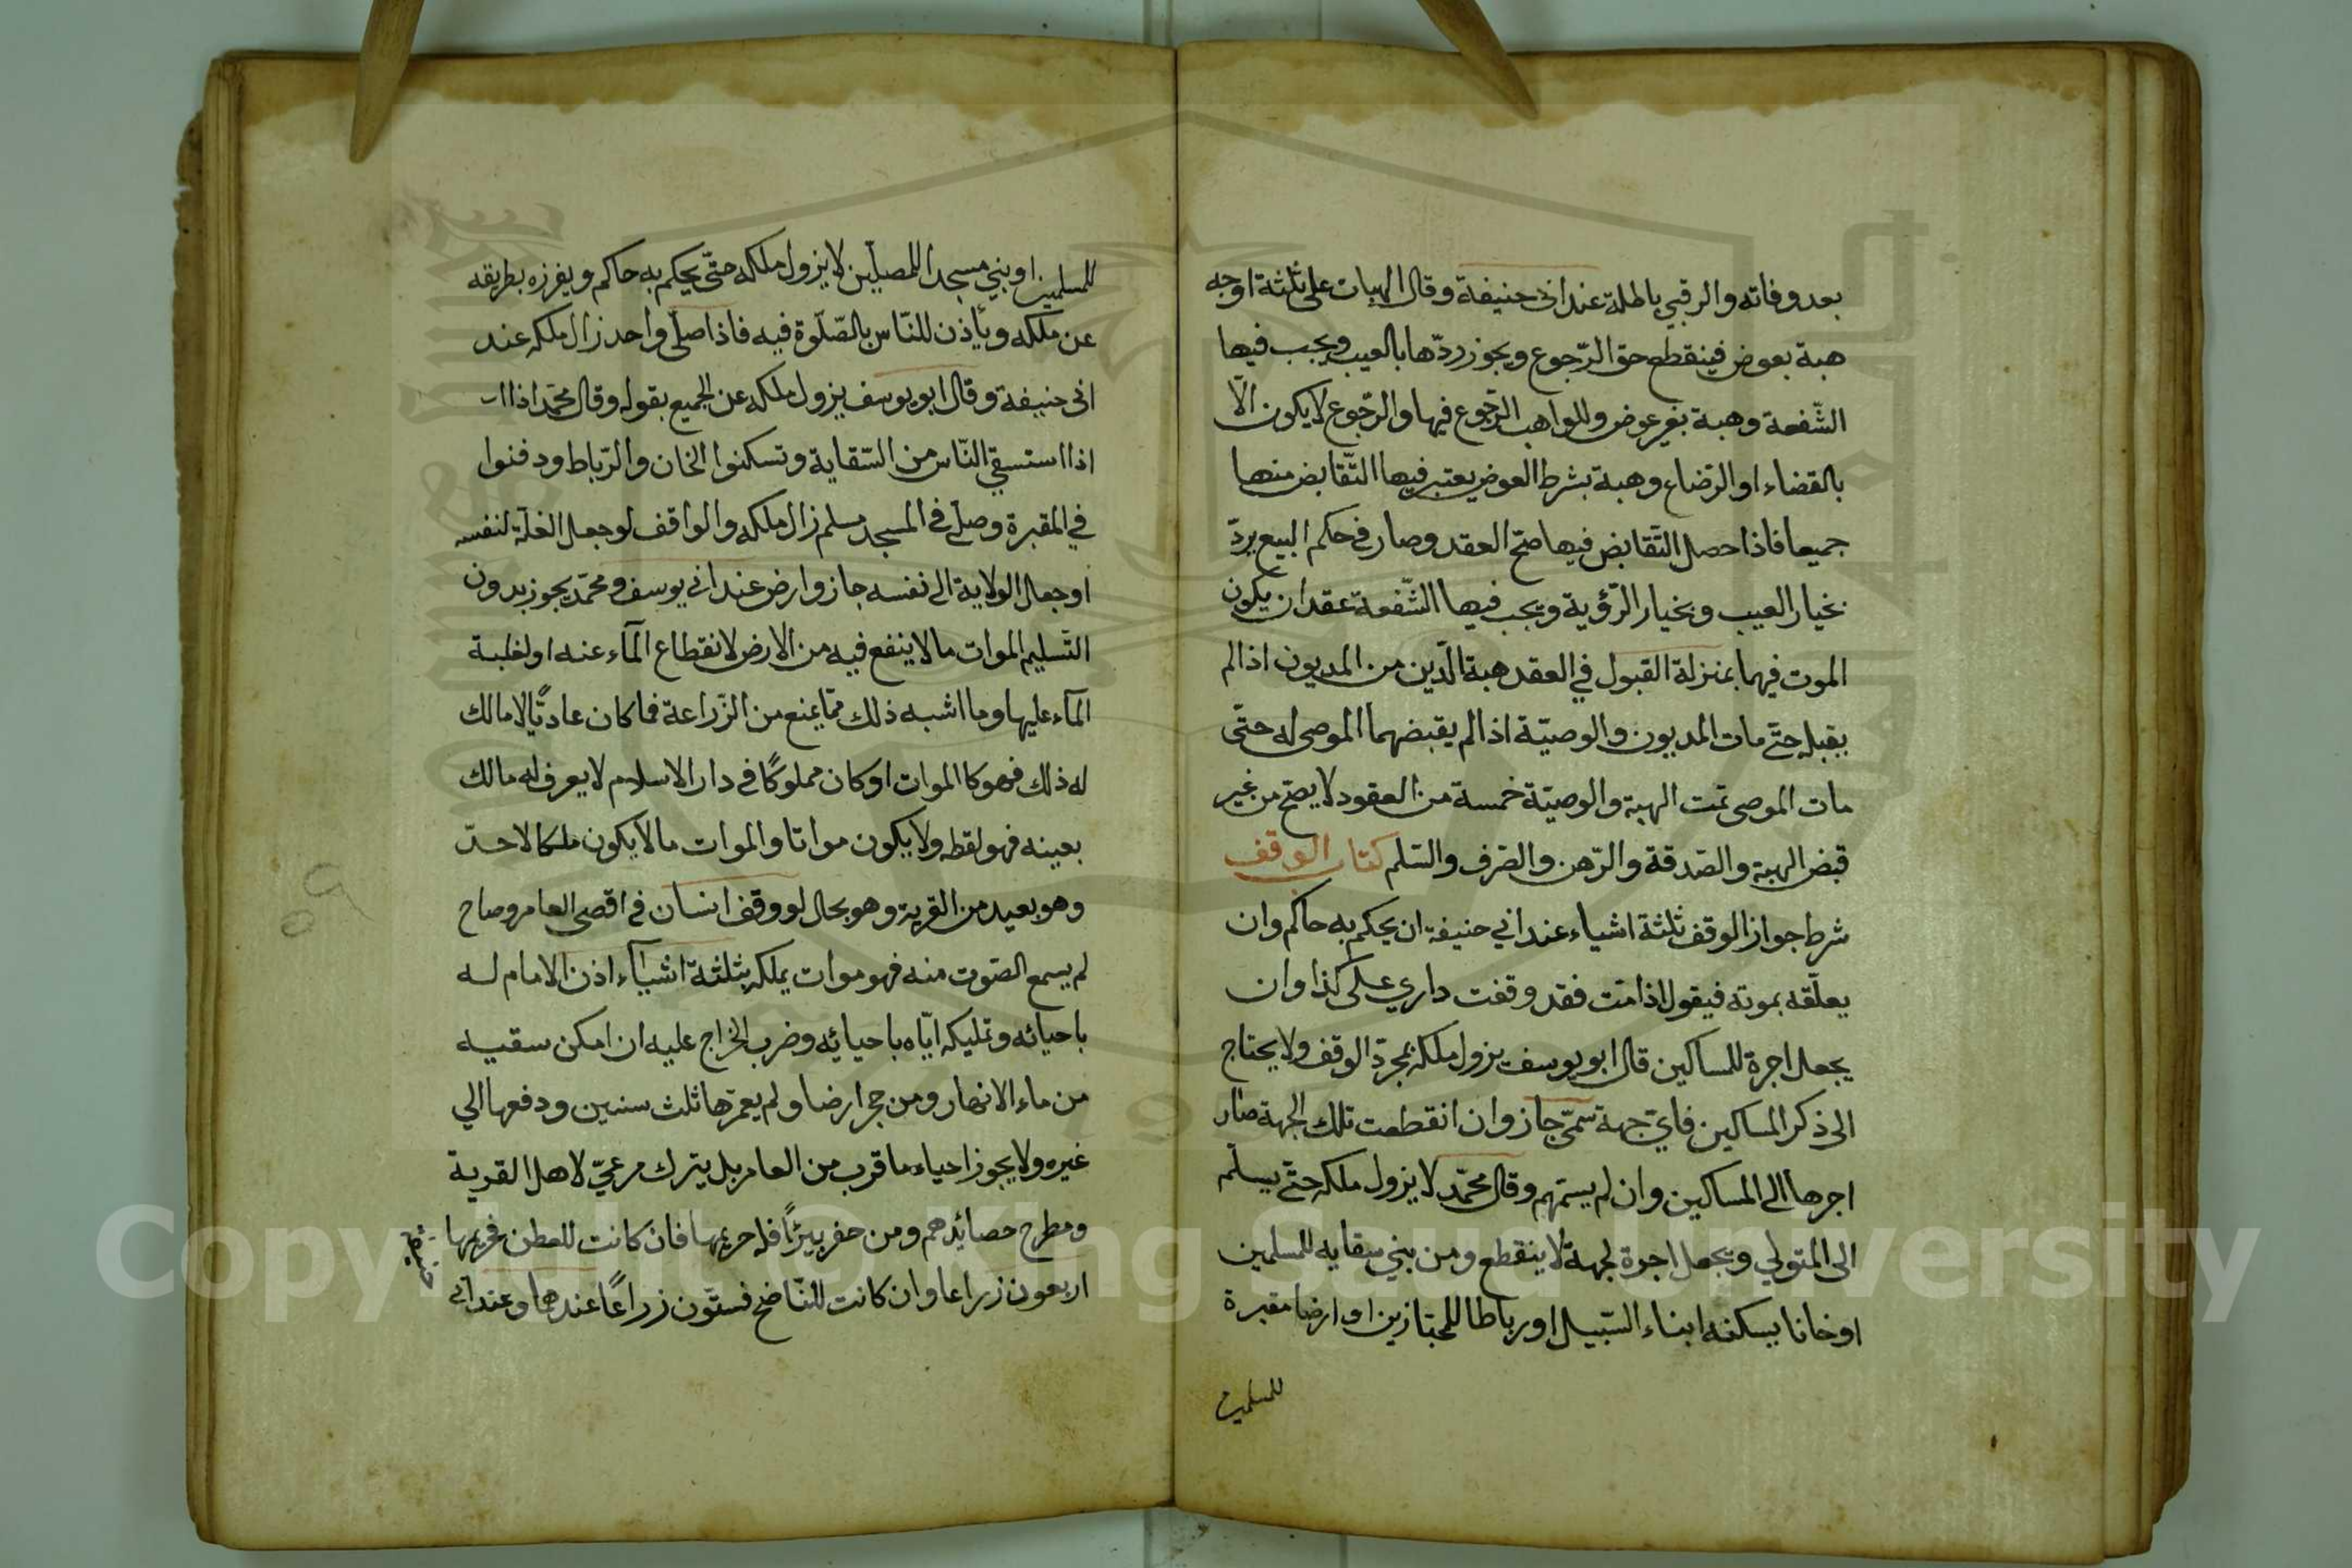 بعد وفاته والرقبي باطلة عند ابى حنيفة وقال الهبات على ثلثة اوجه
هبة بعوض فينقطع حق الرّجوع ويجوز ردّها بالعيب ويجب فيها
الشّفعة وهبة بغير عوض وللواهب الرّجوع فيها والرّجوع لا يكون الّا
بالقضاء او الرّضاء وهبة بشرط العوض يعتبر فيها التّقابض منها
جميعا فاذا حصل التّقابض فيها صحّ العقد وصار في حكم البيع يردّ
بخيار العيب وبخيار الرّؤية ويجب فيها الشّفعة عقدان يكون
الموت فيهما بمنزلة القبول في العقد هبة الدّين من المديون اذا لم
يقبله حتّى مات المديون والوصيّة اذا لم يقبضهما الموصى له حتّى
مات الموصى تمّت الهبة والوصيّة خمسة من العقود لا يصحّ من غير
قبض الهبة والصّدقة والرّهن والصّرف والسّلم كتاب الوقف
شرط جواز الوقف ثلثة اشياء عند ابي حنيفة ان يحكم به حاكم وان
يعلّقه بموته فيقول اذا متّ فقد وقفت داري على كذا وان
يجعل اجرة للمساكين قال ابو يوسف يزول ملكه بمجرّد الوقف ولا يحتاج
الى ذكر المساكين فايّ جهة سمّى جاز وان انقطعت تلك الجهة صار
اجرها الى المساكين وان لم يسمّهم وقال محمّد لا يزول ملكه حتّى يسلّم
الى المتولي ويجعل اجرة لجهة لا ينقطع ومن بني سقاية للمسلمين
او خانا يسكنه ابناء السّبيل او رباطا للمجتازين او ارضا مقبرة
للمسلمين
للمسلمين او بني مسجدا للمصلّين لا يزول ملكه حتّى يحكم به حاكم ويفرزه بطريقه
عن ملكه ويأذن للنّاس بالصّلوة فيه فاذا صلّى واحد زال ملكه عند
ابى حنيفة وقال ابو يوسف يزول ملكه عن الجميع بقوله وقال محمّد اذا
اذا استسقي النّاس من السّقاية وتسكنوا الخان والرّباط ودفنوا
في المقبرة وصلّى في المسجد مسلم زال ملكه والواقف لو جعل الغلّة لنفسه
او جعل الولاية الى نفسه جاز وارض عند ابي يوسف ومحمّد يجوز بدون
التّسليم الموات ما لا ينفع فيه من الارض لانقطاع المآء عنه او لغلبة
المآء عليها وما اشبه ذلك ممّا يمنع من الزّراعة فما كان عاديًّا لا مالك
له ذلك فهو كا الموات او كان مملوكًا في دار الاسلام لا يعرف له مالك
بعينه فهو لقطه ولا يكون مواتا والموات ما لا يكون ملكا لاحدّ
وهو بعيد من القرية وهو بحال لو وقف انسان في اقصى العامر وصاح
لم يسمع الصّوت منه فهو موات يملكه بثلثة اشيآء اذن الامام له
باحيائه وتمليكه ايّاه باحيائه وضرب الخراج عليه ان امكن سقيه
من ماء الانهار ومن حجر ارضا ولم يعمرّها ثلث سنين ودفعها الي
غيره ولا يجوز احياء ما قرب من العامر بل يترك مرعيّ لاهل القرية
ومطرح حصائدهم ومن حفر بيئرًا فله حريمها فان كانت للعطن فحريمها
اربعون زراعا وان كانت للنّاضح فستّون زراعًا عندهما وعند ابى
حنيفة
Copyright © King Saud University